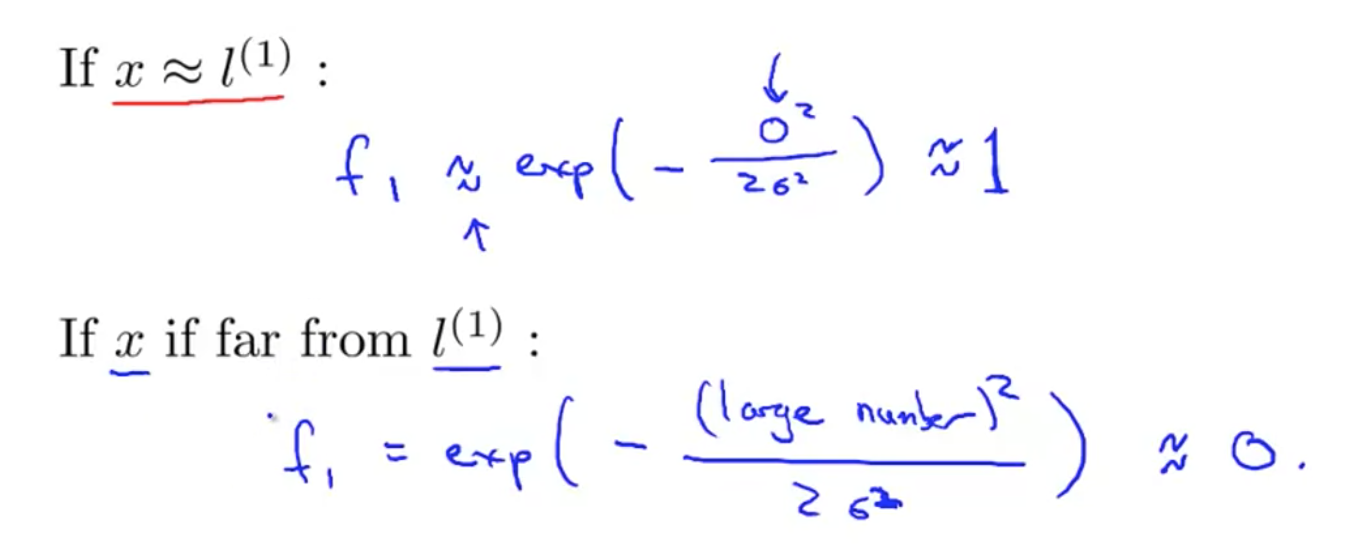 If x ≈ l⁽¹⁾ :
f₁ ≈ exp(- 0²/2σ²) ≈ 1
If x if far from l⁽¹⁾ :
f₁ = exp(- (large number)²/2σ²) ≈ 0.